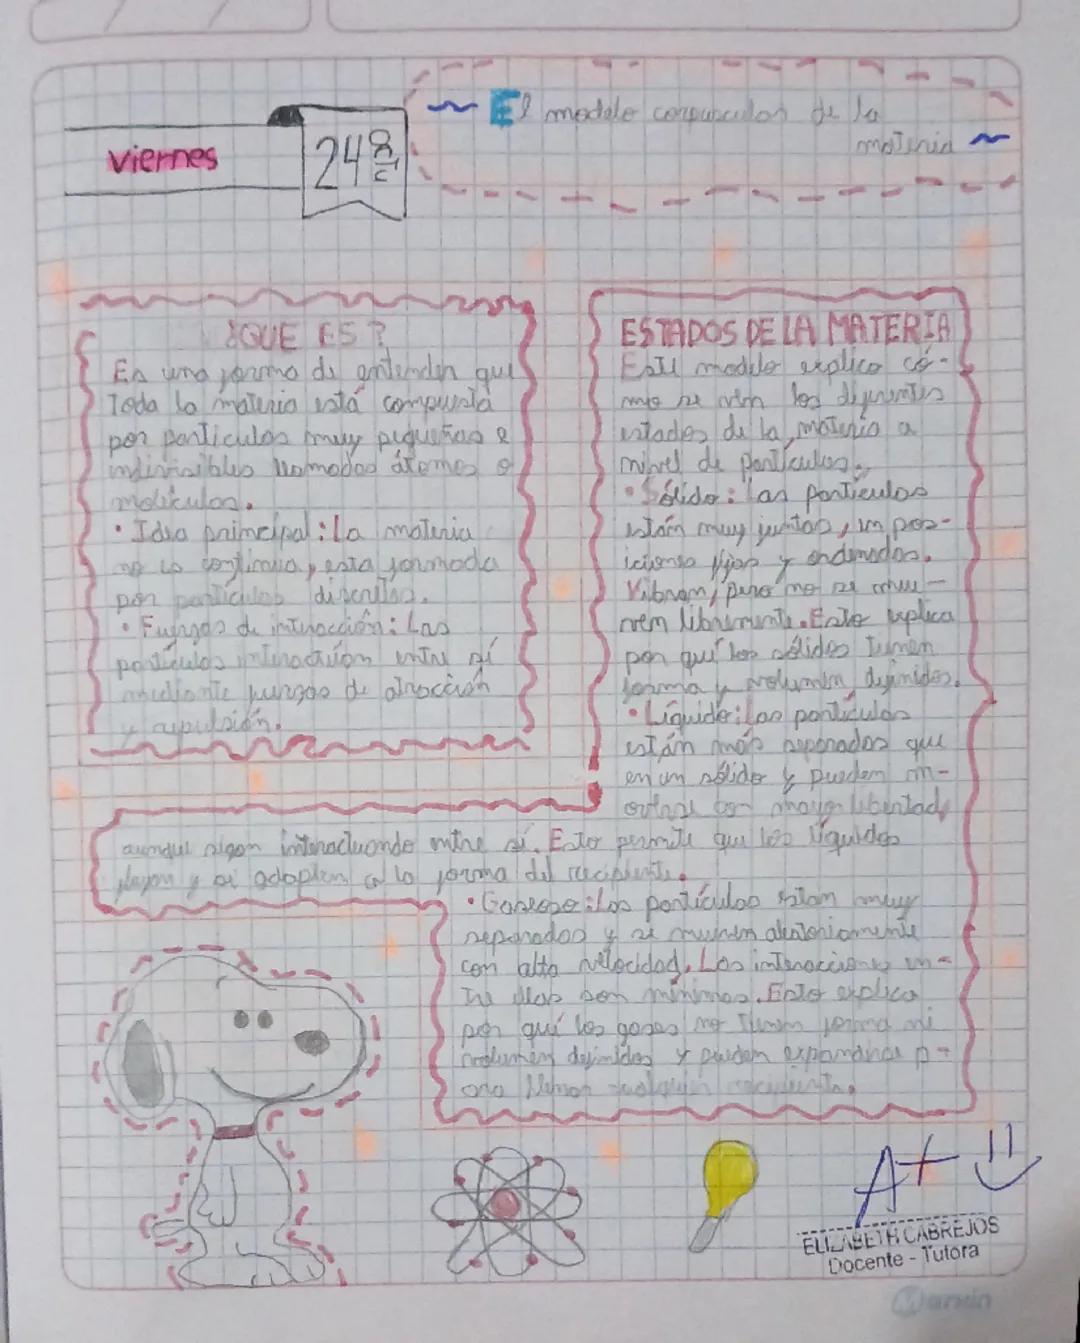 viernes
24
~ El modelo corpuscular de la
materia ~
¿QUE ES?
Es una forma de entender que
toda la materia está compuesta
por particulas muy pequeñas e
indivisibles llamadas átomos o
moléculas.
• Idea principal: La materia
no es continua, esta formada
por particulas discretas.
• Fuerzas de interacción: Las
partículas interactúan entre sí
mediante fuerzas de atracción
y repulsión.
ESTADOS DE LA MATERIA
Este modelo explica có-
mo se ven los diferentes
estados de la materia a
nivel de partículas.
• Sólido: las partículas
están muy juntas, en pos-
iciones fijas y ordenadas.
Vibran, pero no se mue-
ven libremente. Esto explica
por qué los sólidos tienen
forma y volumen definidos.
• Líquido: Las partículas
están más separadas que
en un sólido y pueden m-
overse con mayor libertad,
aunque sigan interactuando entre sí. Esto permite que los líquidos
fluyan y se adapten a la forma del recipiente.
• Gaseoso: Las partículas están muy
separadas y se mueven aleatoriamente
con alta velocidad. Las interacciones en-
tre ellas son mínimas. Esto explica
por qué los gases no tienen forma ni
volumen definidos y pueden expandirse p-
ara llenar cualquier recipiente.
A+
ELIZABETH CABREJOS
Docente - Tutora